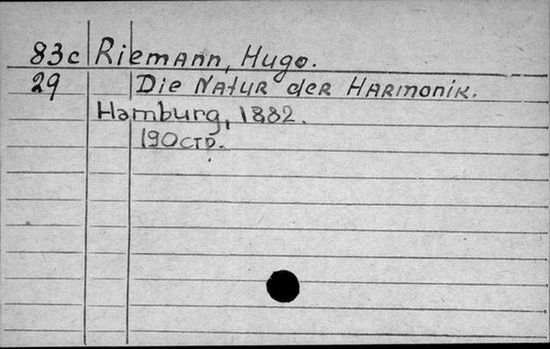 83c Riemann, Hugo.
29 Die Natur der Harmonik.
Hamburg, 1882.
190стр.